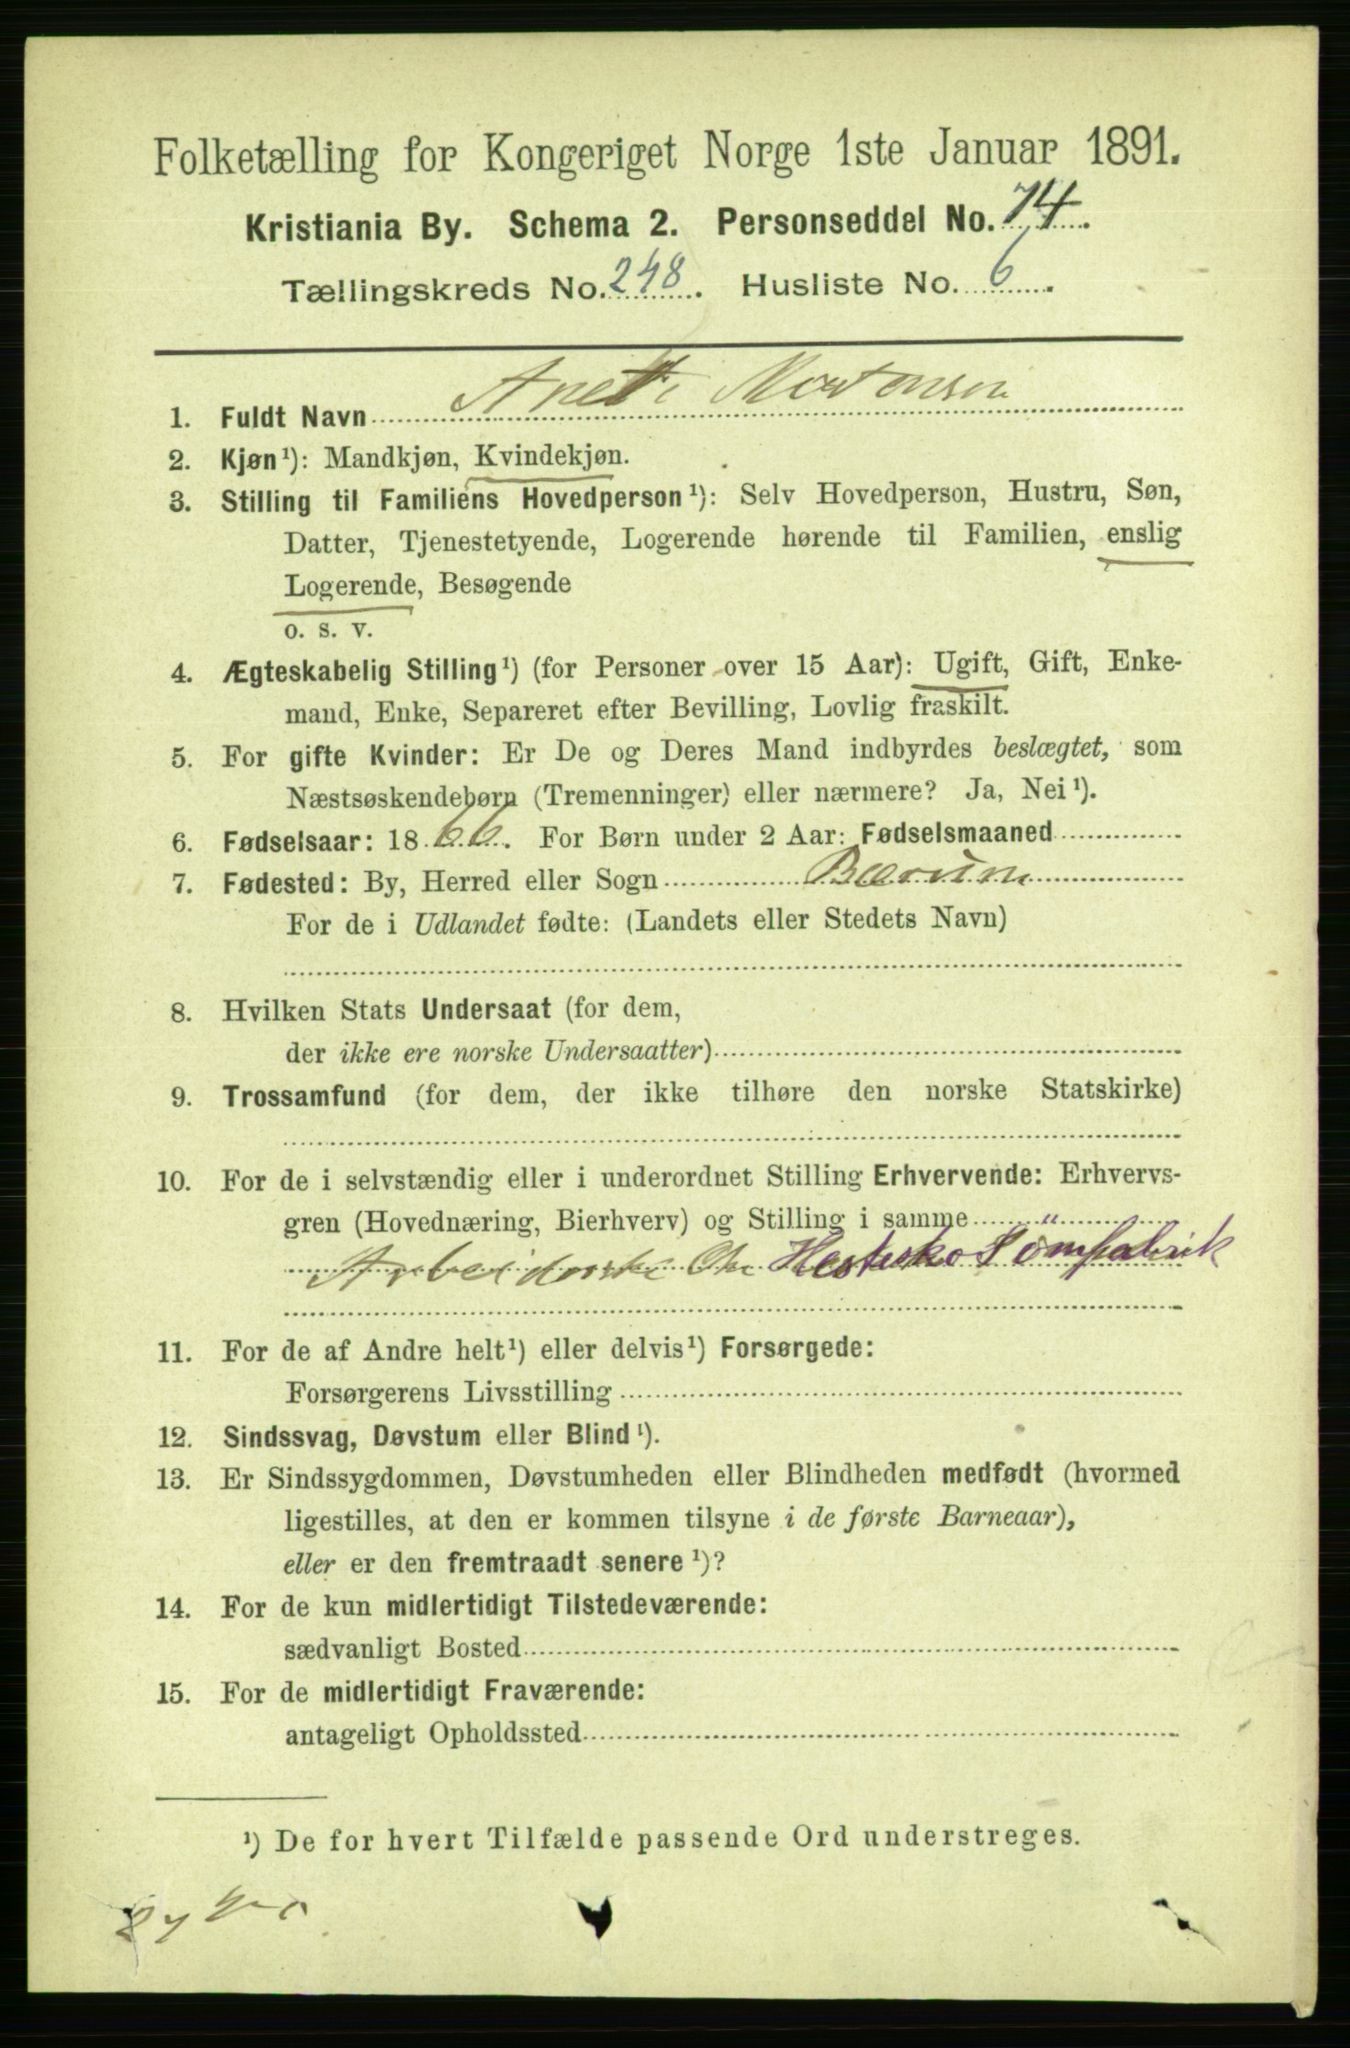 Folketælling for Kongeriget Norge 1ste Januar 1891.
Kristiania By. Schema 2. Personseddel No. 74.
Tællingskreds No. 248. Husliste No. 6.
1. Fuldt Navn Anette Mortensen
2. Kjøn¹): Mandkjøn, Kvindekjøn.
3. Stilling til Familiens Hovedperson¹): Selv Hovedperson, Hustru, Søn,
Datter, Tjenestetyende, Logerende hørende til Familien, enslig
Logerende, Besøgende
o. s. v.
4. Ægteskabelig Stilling¹) (for Personer over 15 Aar): Ugift, Gift, Enke-
mand, Enke, Separeret efter Bevilling, Lovlig fraskilt.
5. For gifte Kvinder: Er De og Deres Mand indbyrdes beslægtet, som
Næstsøskendebørn (Tremenninger) eller nærmere? Ja, Nei¹).
6. Fødselsaar: 1866. For Børn under 2 Aar: Fødselsmaaned
7. Fødested: By, Herred eller Sogn Bærum
For de i Udlandet fødte: (Landets eller Stedets Navn)
8. Hvilken Stats Undersaat (for dem,
der ikke ere norske Undersaatter)
9. Trossamfund (for dem, der ikke tilhøre den norske Statskirke)
10. For de i selvstændig eller i underordnet Stilling Erhvervende: Erhvervs-
gren (Hovednæring, Bierhverv) og Stilling i samme
Arbeiderske Hestskosömfabrik
11. For de af Andre helt¹) eller delvis¹) Forsørgede:
Forsørgerens Livsstilling
12. Sindssvag, Døvstum eller Blind¹).
13. Er Sindssygdommen, Døvstumheden eller Blindheden medfødt (hvormed
ligestilles, at den er kommen tilsyne i de første Barneaar),
eller er den fremtraadt senere¹)?
14. For de kun midlertidigt Tilstedeværende:
sædvanligt Bosted
15. For de midlertidigt Fraværende:
antageligt Opholdssted
¹) De for hvert Tilfælde passende Ord understreges.